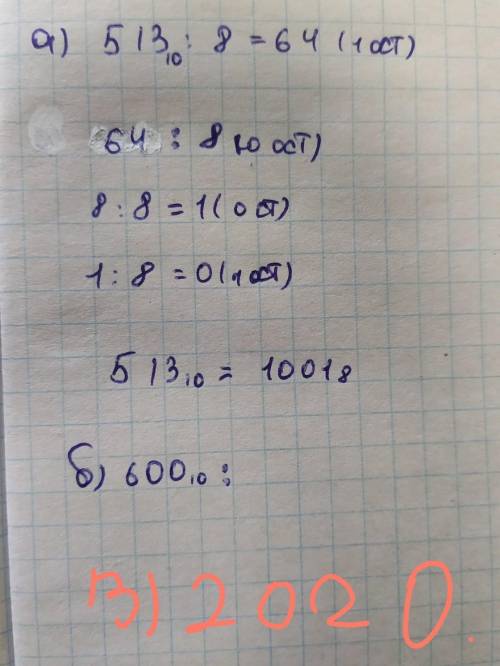 а) 513₁₀ : 8 = 64 (1 ост)
64 : 8 (0 ост)
8 : 8 = 1 (0 ст)
1 : 8 = 0 (1 ост)
513₁₀ = 1001₈
б) 600₁₀ :
В) 2020.